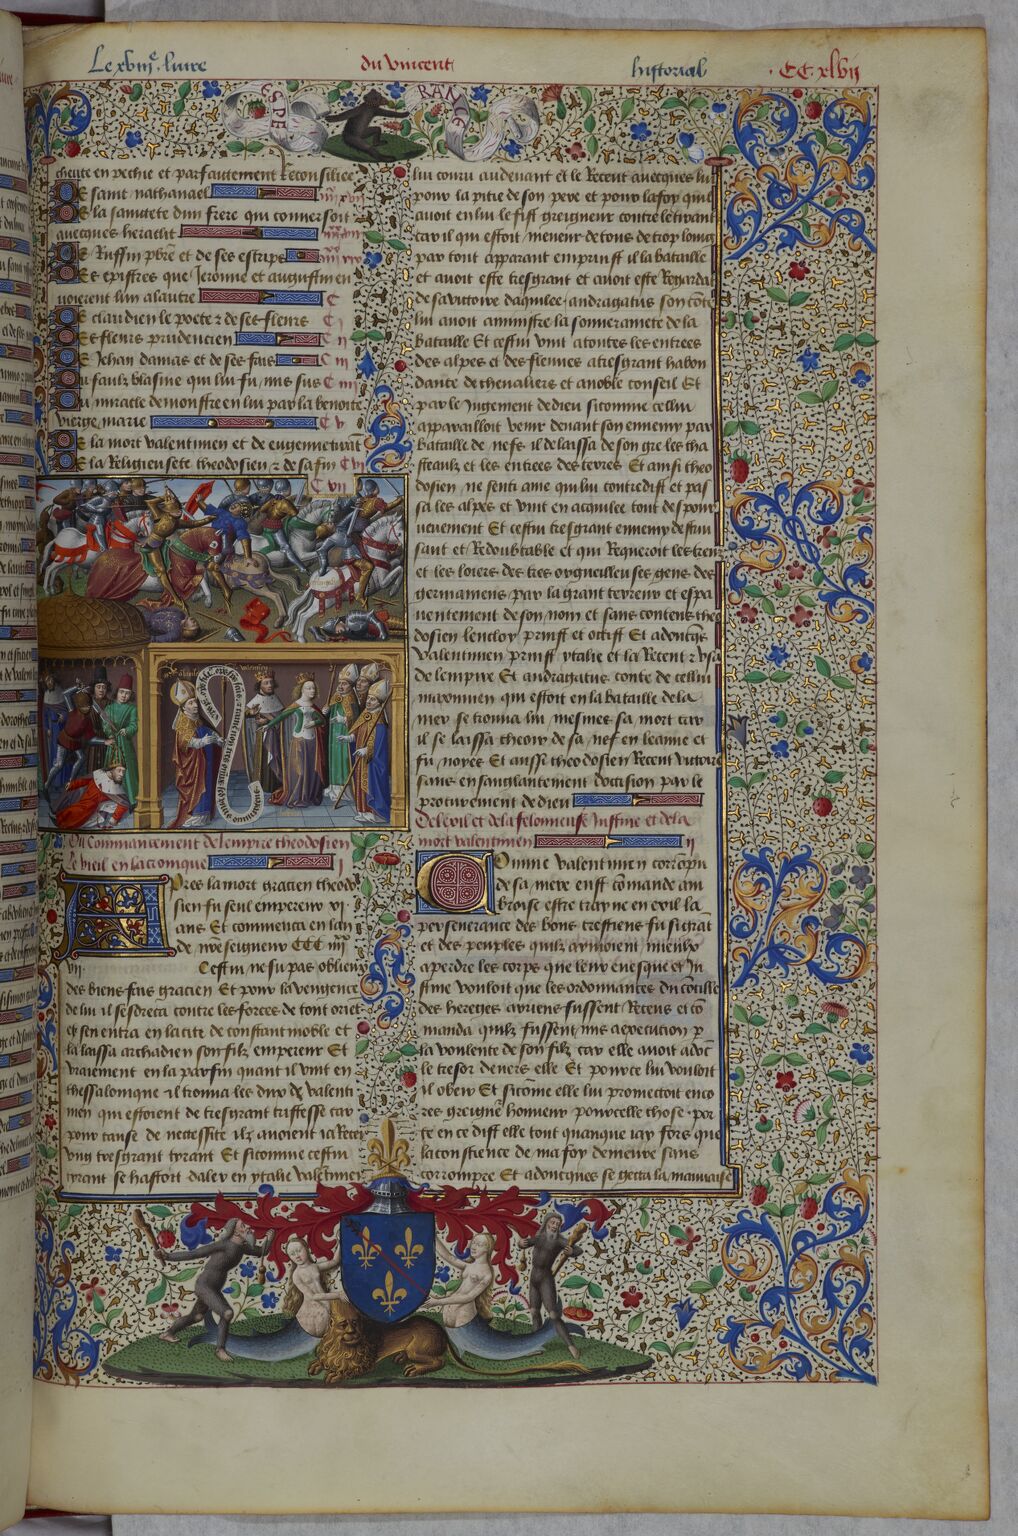 Le xviiie liure du vincent historial CC xlvii
ESPE RANCE
cheute en pechie et parfaictement reconsiliee
De saint nathanael
De la sainctete dun frere qui conuersoit
auecques heracli
De Ruffin pbre et de ses escrips
Des epistres que Jeronime et augustin en
uoierent lun a lautre C
De claudien le poete z de ses fleurs C i
Des fleurs prudencien C ii
De Jehan damas et de ses fais C iii
Du faulz blasme qui lui fu mis sus C iiii
Du miracle demonstre en lui par la benoite
vierge marie C v
De la mort valentinien et de eugenie tirant
De la Religieusete theodosien z de sa fin C vi
C vii
Du Commancement de lempire theodosien
le vieil en la cronique i
Apres la mort gracien theodo
sien fu seul empereur xi
ans Et commenca en lan
de nre seigneur CCC iiii
vii Cestui ne fu pas oblieux
des biens fais gracien Et pour la vengence
de lui il se dreca contre les forces de tout oriet
et sen entra en la cite de constantinoble et
la laissa archadien son filz empereur Et
vraiement en la parfin quant il vint en
thessalonique il trouua les
men qui estoient de tresgrant tristesse car
pour cause de necessite ilz auoient ia Receu
vng tresgrant tyrant Et si comme cestui
tyrant se hastoit daler en ytalie valentinien
lui couru audeuant et le Receut auecques lui
pour la pitie de son pere et pour la foy quil
auoit en lui Le fist greigneur contre le tirant
car il qui estoit meneur de tous de trop loing
par tout apparant emprinst il la bataille
et auoit este tresgrant et auoit este Regardat
de sa victoire daquilee andragatus son cote
lui auoit aminstre la souuerainete de la
bataille Et cestui vint a toutes les entrees
des alpes et des fleuues a tresgrant habon
dance de cheualiers et a noble conseil Et
par le Jugement de dieu si comme cellui
appareilloit venir deuant son ennemy par
bataille de nefs il delaissa de son gre les cha
steaulz et les entrees des terres Et ainsi theo
dosien ne senti ame qui lui contredist et pas
sa les alpes et vint en acquilee tout despour
ueuement Et cestui tresgrant ennemy destrui
sant et Redoubtable et qui Requeroit les treuz
et les loiers des tres orgueilleuses gens des
germainens par la grant terreur et espa
uentement de son nom et sans contens theo
dosien lencloy prinst et occist Et adoncqs
Valentinien prinst ytalie et la Receut z usa
de lempire Et andragatus conte de cellui
maximien qui estoit en la bataille de la
mer se trouua lui mesmes sa mort car
il se laissa cheoir de sa nef en leaue et
fu noyes Et aussi theodosien Receut victoire
sans ensanglantement doccision par le
procurement de dieu
De lexil et de la felonneuse Justine et de la
mort valentinien ii
Comme valentinien corrompu
de sa mere eust comande am
broise estre trayne en exil la
perseuerance des bons crestiens fu si grat
et des peuples quilz aymoient mieulx
a perdre les corps que leur euesque et Ju
stine vouloit que les ordonnances du cocille
des hereges arriens fussent Receus et co
manda quilz fussent mis a execution p
la voulente de son filz car elle auoit adoc
le tresor deuers elle Et pource lui vouloit
il obeir Et sicome elle lui promectoit enco
res greigne honneur pour celle chose por
te en ce dist elle tout quanque iay fors que
la conscience de ma foy demeure sans
corrompre Et adoncques se gecta la mauuaise